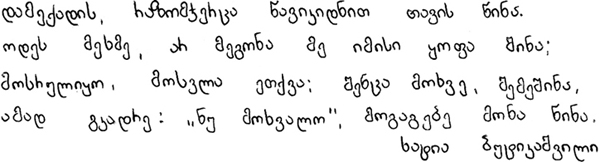 დამექადის, რაზომჯერცა წავიკიდნით თავის წინა.
ოდეს მესმე, არ მეგონა მე იმისი ყოფა შინა;
მოსრულიყო, მოსვლა ეთქვა; შენცა მოხვე, შემეშინა,
ამად გკადრე: „ნუ მოხვალო", მოგაგებე მონა წინა.
ხატია ბუციკაშვილი